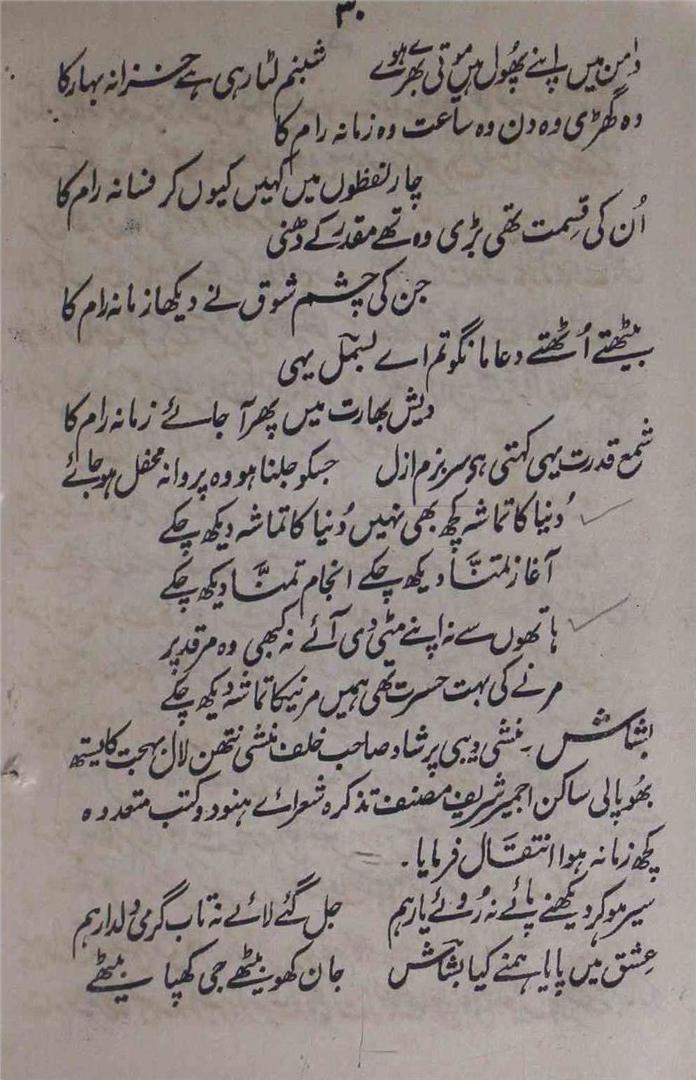 ۳۰
دامن میں اپنے پھول ہیں موتی بھرے ہوے شبنم لٹا رہی ہے خزانہ بہار کا
وہ گھڑی وہ دن وہ ساعت وہ زمانہ رام کا
چار لفظوں میں کہیں کیوں کر فسانہ رام کا
اُن کی قسمت تھی بڑی وہ تھے مقدر کے دھنی
جن کی چشم شوق نے دیکھا زمانہ رام کا
بیٹھتے اُٹھتے دعا مانگو تم اے بسمل یہی
دیش بھارت میں پھر آ جائے زمانہ رام کا
شمع قدرت یہی کہتی ہی سر بزم ازل جسکو جلنا ہو وہ پروانہ محفل ہو جائے
دُنیا کا تماشہ کچھ بھی نہیں دُنیا کا تماشہ دیکھ چکے
آغاز تمنّا دیکھ چکے انجام تمنّا دیکھ چکے
ہاتھوں سے نہ اپنے مٹی دی آئے نہ کبھی وہ مرقد پر
مرنے کی بہت حسرت تھی ہمیں مرنیکا تماشہ دیکھ چکے
بشاش ۔ منشی دیبی پرشاد صاحب خلف منشی نتھن لال بہجت کایستھ
بھوپالی ساکن اجمیر شریف مصنف تذکرہ شعرائے ہنود و کتب متعددہ
کچھ زمانہ ہوا انتقال فرمایا ۔
سیر ہو کر دیکھنے پائے نہ رُوئے یار ہم جل گئے لائے نہ تاب گرمی دلدار ہم
عشق میں پایا ہمنے کیا بشاش جان کھو بیٹھے جی کھپا بیٹھے